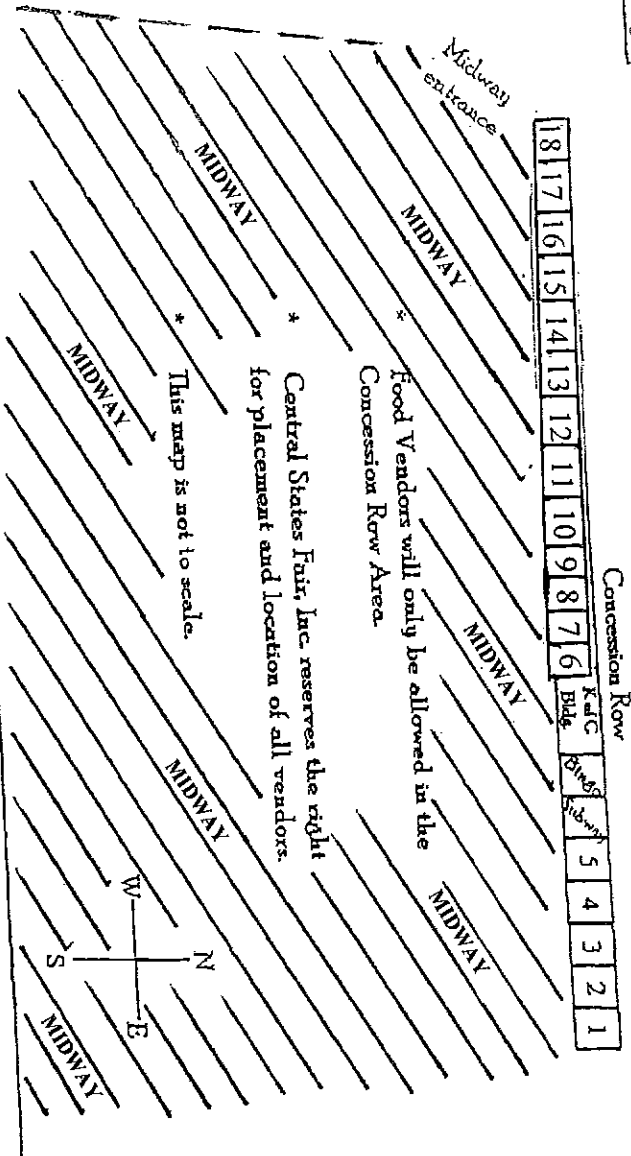 Concession Row
18 17 16 15 14 13 12 11 10 9 8 7 6 K of C Bldg. Bingo Subway 5 4 3 2 1
Midway
entrance
MIDWAY
MIDWAY
MIDWAY
MIDWAY
* Food Vendors will only be allowed in the
Concession Row Area.
* Central States Fair, Inc. reserves the right
for placement and location of all vendors.
* This map is not to scale.
MIDWAY
MIDWAY
MIDWAY
N
W E
S
MIDWAY